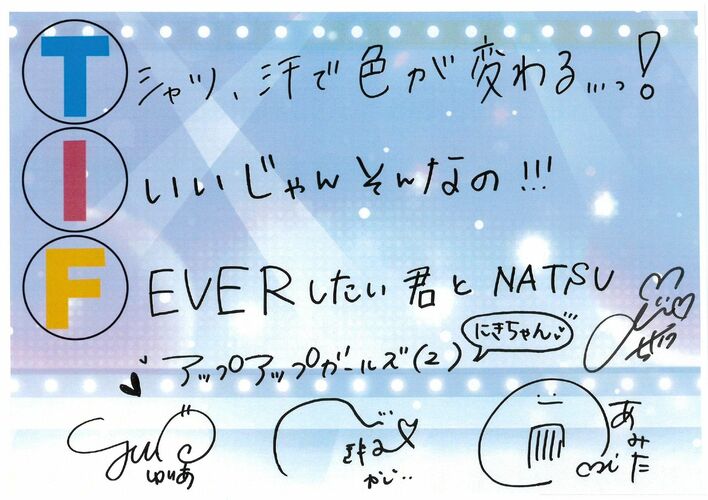 Tシャツ、汗で色が変わる...っ!
Iいいじゃんそんなの!!!
FEVERしたい君とNATSU
にきちゃん
アップアップガールズ(2)
しゅりあ
あみた